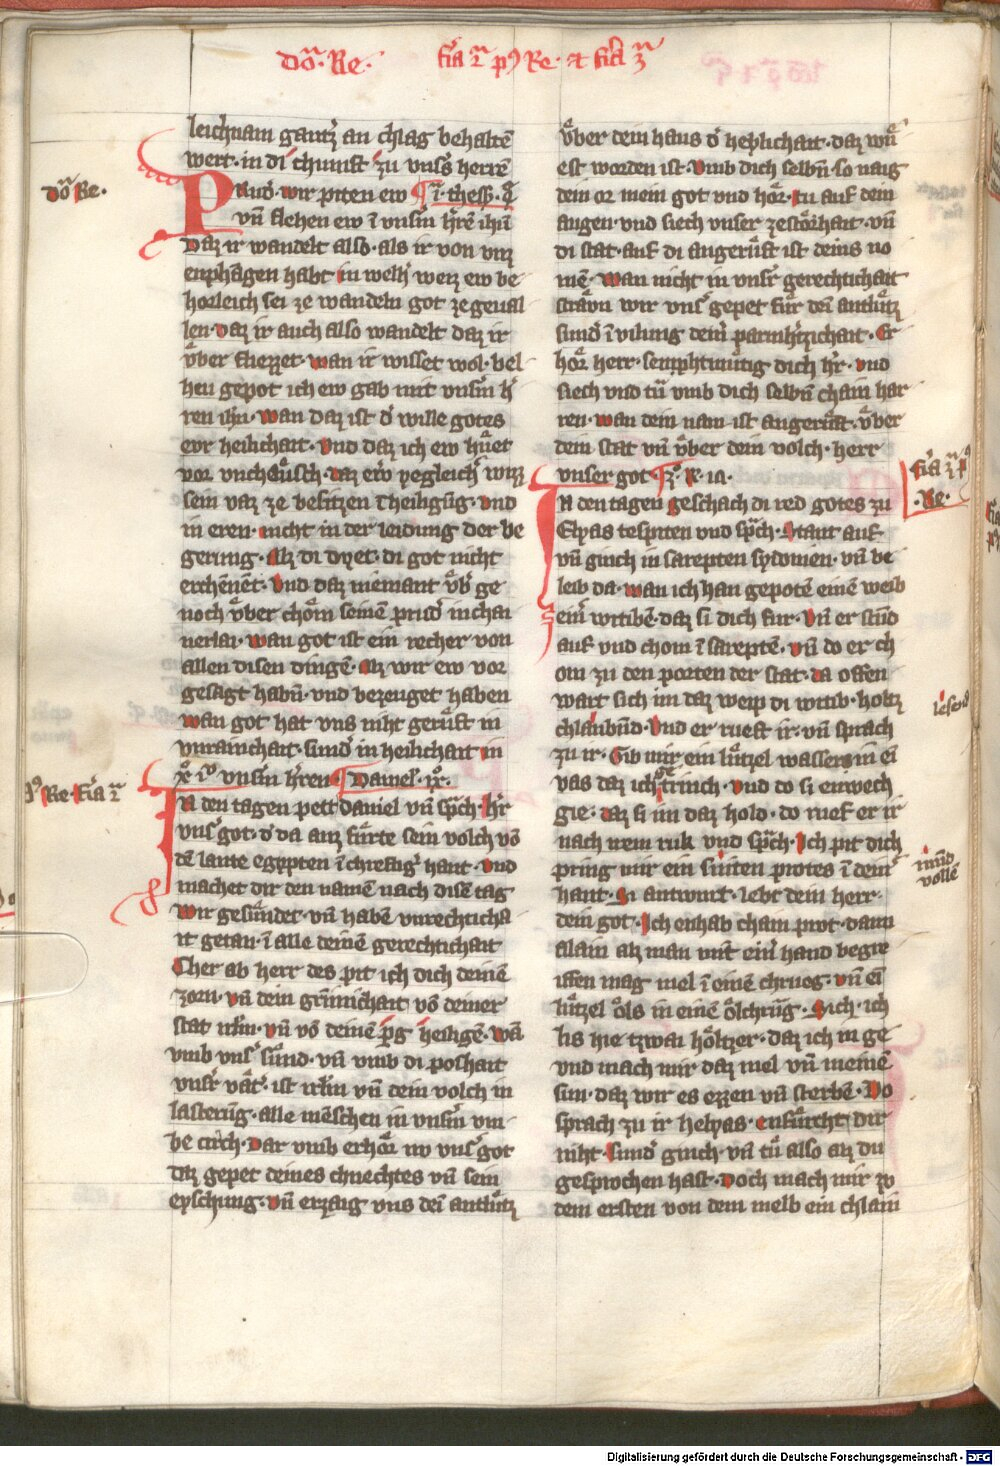 dōn̄. Re. f̄ia ij p⁹ Re. et f̄ia iij
leichnam gantz an chlag behaltē
wert. in di chunft zu vnsˢ herrē
dōn̄ Re.
Prud̓. wir piten ew ¶ j. thess. 4
vn̄ flehen ew ī vnsˢm h̓rē ih̄u
Daz ir wandelt also. als ir von vnz
enphagen habt in welh̓ weiz ew be
horleich sei ze wandeln got ze geual
len. daz ir auch also wandelt daz ir
vͤber fliezzet. wan ir wisset wol. bel
heu gepot ich ew gab mit vnsˢm h̓
ren ih̄u. wan daz ist d̓ wille gotes
ewr heilichait. vnd daz ich ew huͤet
vor vncheuͤsch. daz ewr yegleich̓ wizz
sein vaz ze besitzen ī heiligūg. vnd
in eren. nicht in der leidung der be
gerung. Alz di dyet. di got nicht
erchēnēt. Vnd daz niemant vͤb̓ ge
noch vͤber choͤm seinē prud̓ in chai
nerlai. wan got ist ein recher von
allen disen dingē. Alz wir ew vor
gesagt habn̄. vnd bezeuget haben
wan got hat vns niht geruͤft in
vnrainchait. sund̓ in heilichait in
xp̄o ih̄u vnsˢm h̓ren ¶ Daniel. ix.
p⁹ Re. f̄ia ij
In den tagen pett Daniel vn̄ sp̄ch. h̓r
vnsˢ got. d̓ da auz fuͤrte sein volch vō
dē lante egypten ī chreftigˢ hant. vnd
machet dir den namē nach disē tag
wir gesuͤndet. vn̄ habē vnrechticha
it getan ī alle deinē gerechtichait
Cher ab herr des pit ich dich deinē
zorn. vn̄ dein grimichait vō deiner
stat irl̄m. vn̄ vō deinē p̄g heiligē. wā
vmb vnsˢ suͤnd. vn̄ vmb di poshait
vnsˢr vaͤt̓. ist irl̄m vn̄ dein volch in
lasterūg. alle mēschen in vnsˢm vm
be circh. Dar vmb erhoͤr nv vnsˢ got
daz gepet deines chnechtes vn̄ sein
eyschung. vn̄ erzaig vns dei antluͤtz
vͤber dein haus d̓ heylichait. daz wuͤ
est worden ist. vmb dich selbn̄. so naig
dein or mein got vnd hoͤr. tu auf dein
augen. vnd siech vnser zestoͤrhait. vn̄
di stat. auf di angeruͤft ist deins na
mē. wan nicht in vnsˢr gerechtichait
straͤvn wir vnsˢ gepet fuͤr dei antluͤtz
sund̓ ī vilung deinˢ parmh̓tzichait. Er
hoͤr herr. semphtmuͤtig dich h̓r. vnd
siech vnd tuͤ vmb dich selbn̄ chain har
ren. wan dein nam ist angeruͤft. vͤber
dein stat vn̄ vͤber dein volch. herr
vnser got.
f̄ia ij p⁹
. Re.
In den tagen geschach di red gotes zu
Elyas tespiten vnd sp̄ch. Stant auf
vn̄ ginch in sarepten sydonien. vn̄ be
leib da. wan ich han gepotē einē weib
einˢ witibē. daz si dich fur. Vn̄ er stūd
auf vnd chom ī sareptē. vn̄ do er ch
om zu den porten der stat. da offen
wart sich im daz weip di witib. holtz
lesend
chlaubūd. Vnd er rueft ir. vn̄ sprach
zu ir. Gib mir ein luͤtzel wassers in ei
vas daz ich getrinch. vnd do si enwech
gie. daz si im daz hold. do rief er ir
nach irem ruk vnd sp̄ch. Ich pit dich
pring mir ein sniten protes ī deinˢ
mūd
vollē
hant. Si antwurt. lebt dein herr.
dein got. Ich enhab chain prot. dann
alain alz man mit einˢ hand begre
iffen mag mel ī einē chrueg. vn̄ ei
luͤtzel oͤls in einē oͤlchrūg. Sich. ich
lis hie tzwai hoͤltzer. daz ich in ge
vnd mach mir daz mel vn̄ meinē
sun. daz wir es ezzen vn̄ sterbē. Do
sprach zu ir helyas. enfuͤrcht dir
niht. Sund̓ ginch. vn̄ tuͤ also alz du
gesprochen hast. Doch mach mir zv
dem ersten von dem melb ein chlain
Digitalisierung gefördert durch die Deutsche Forschungsgemeinschaft - DFG